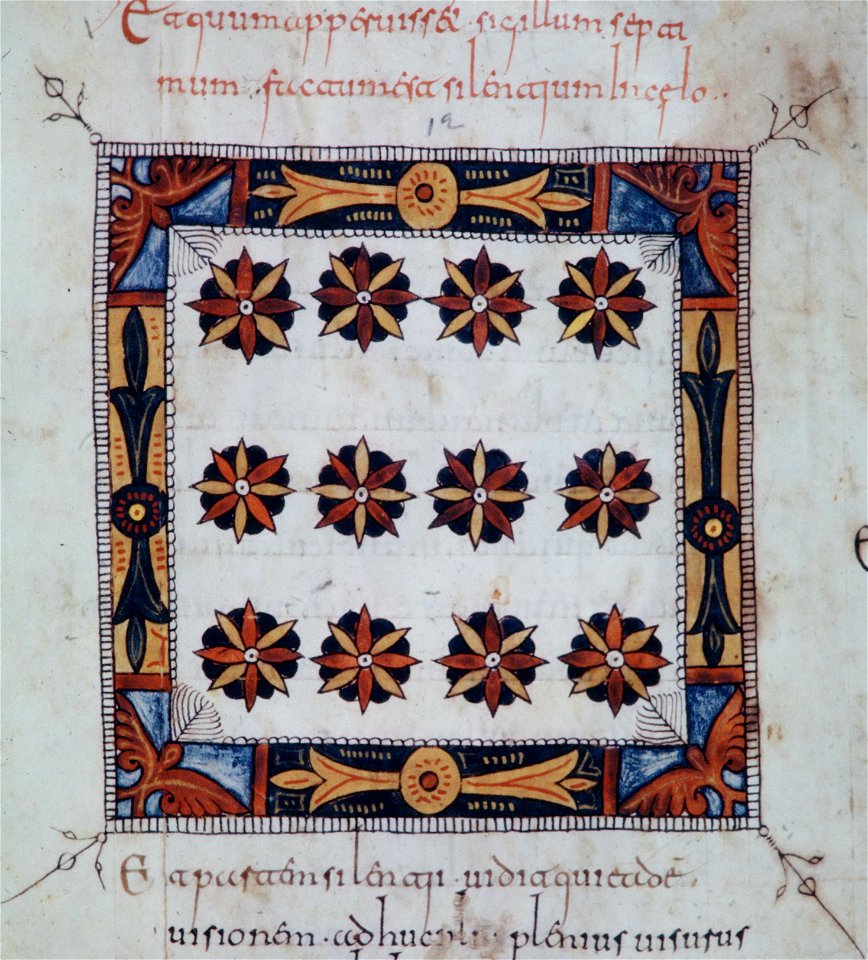 Et quum apperuisset · sigillum septi
mum factum est silentium in celo ··
Et partem silentii · uidit qui eadē ·
uisionem · adhuc plenius uisurus